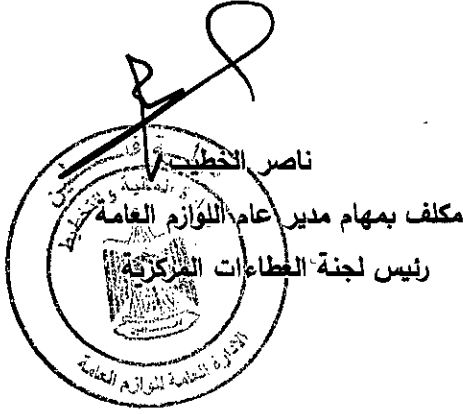 ناصر الخطيب
مكلف بمهام مدير عام اللوازم العامة
رئيس لجنة العطاءات المركزية
المالية والتخطيط
الإدارة العامة للوازم العامة